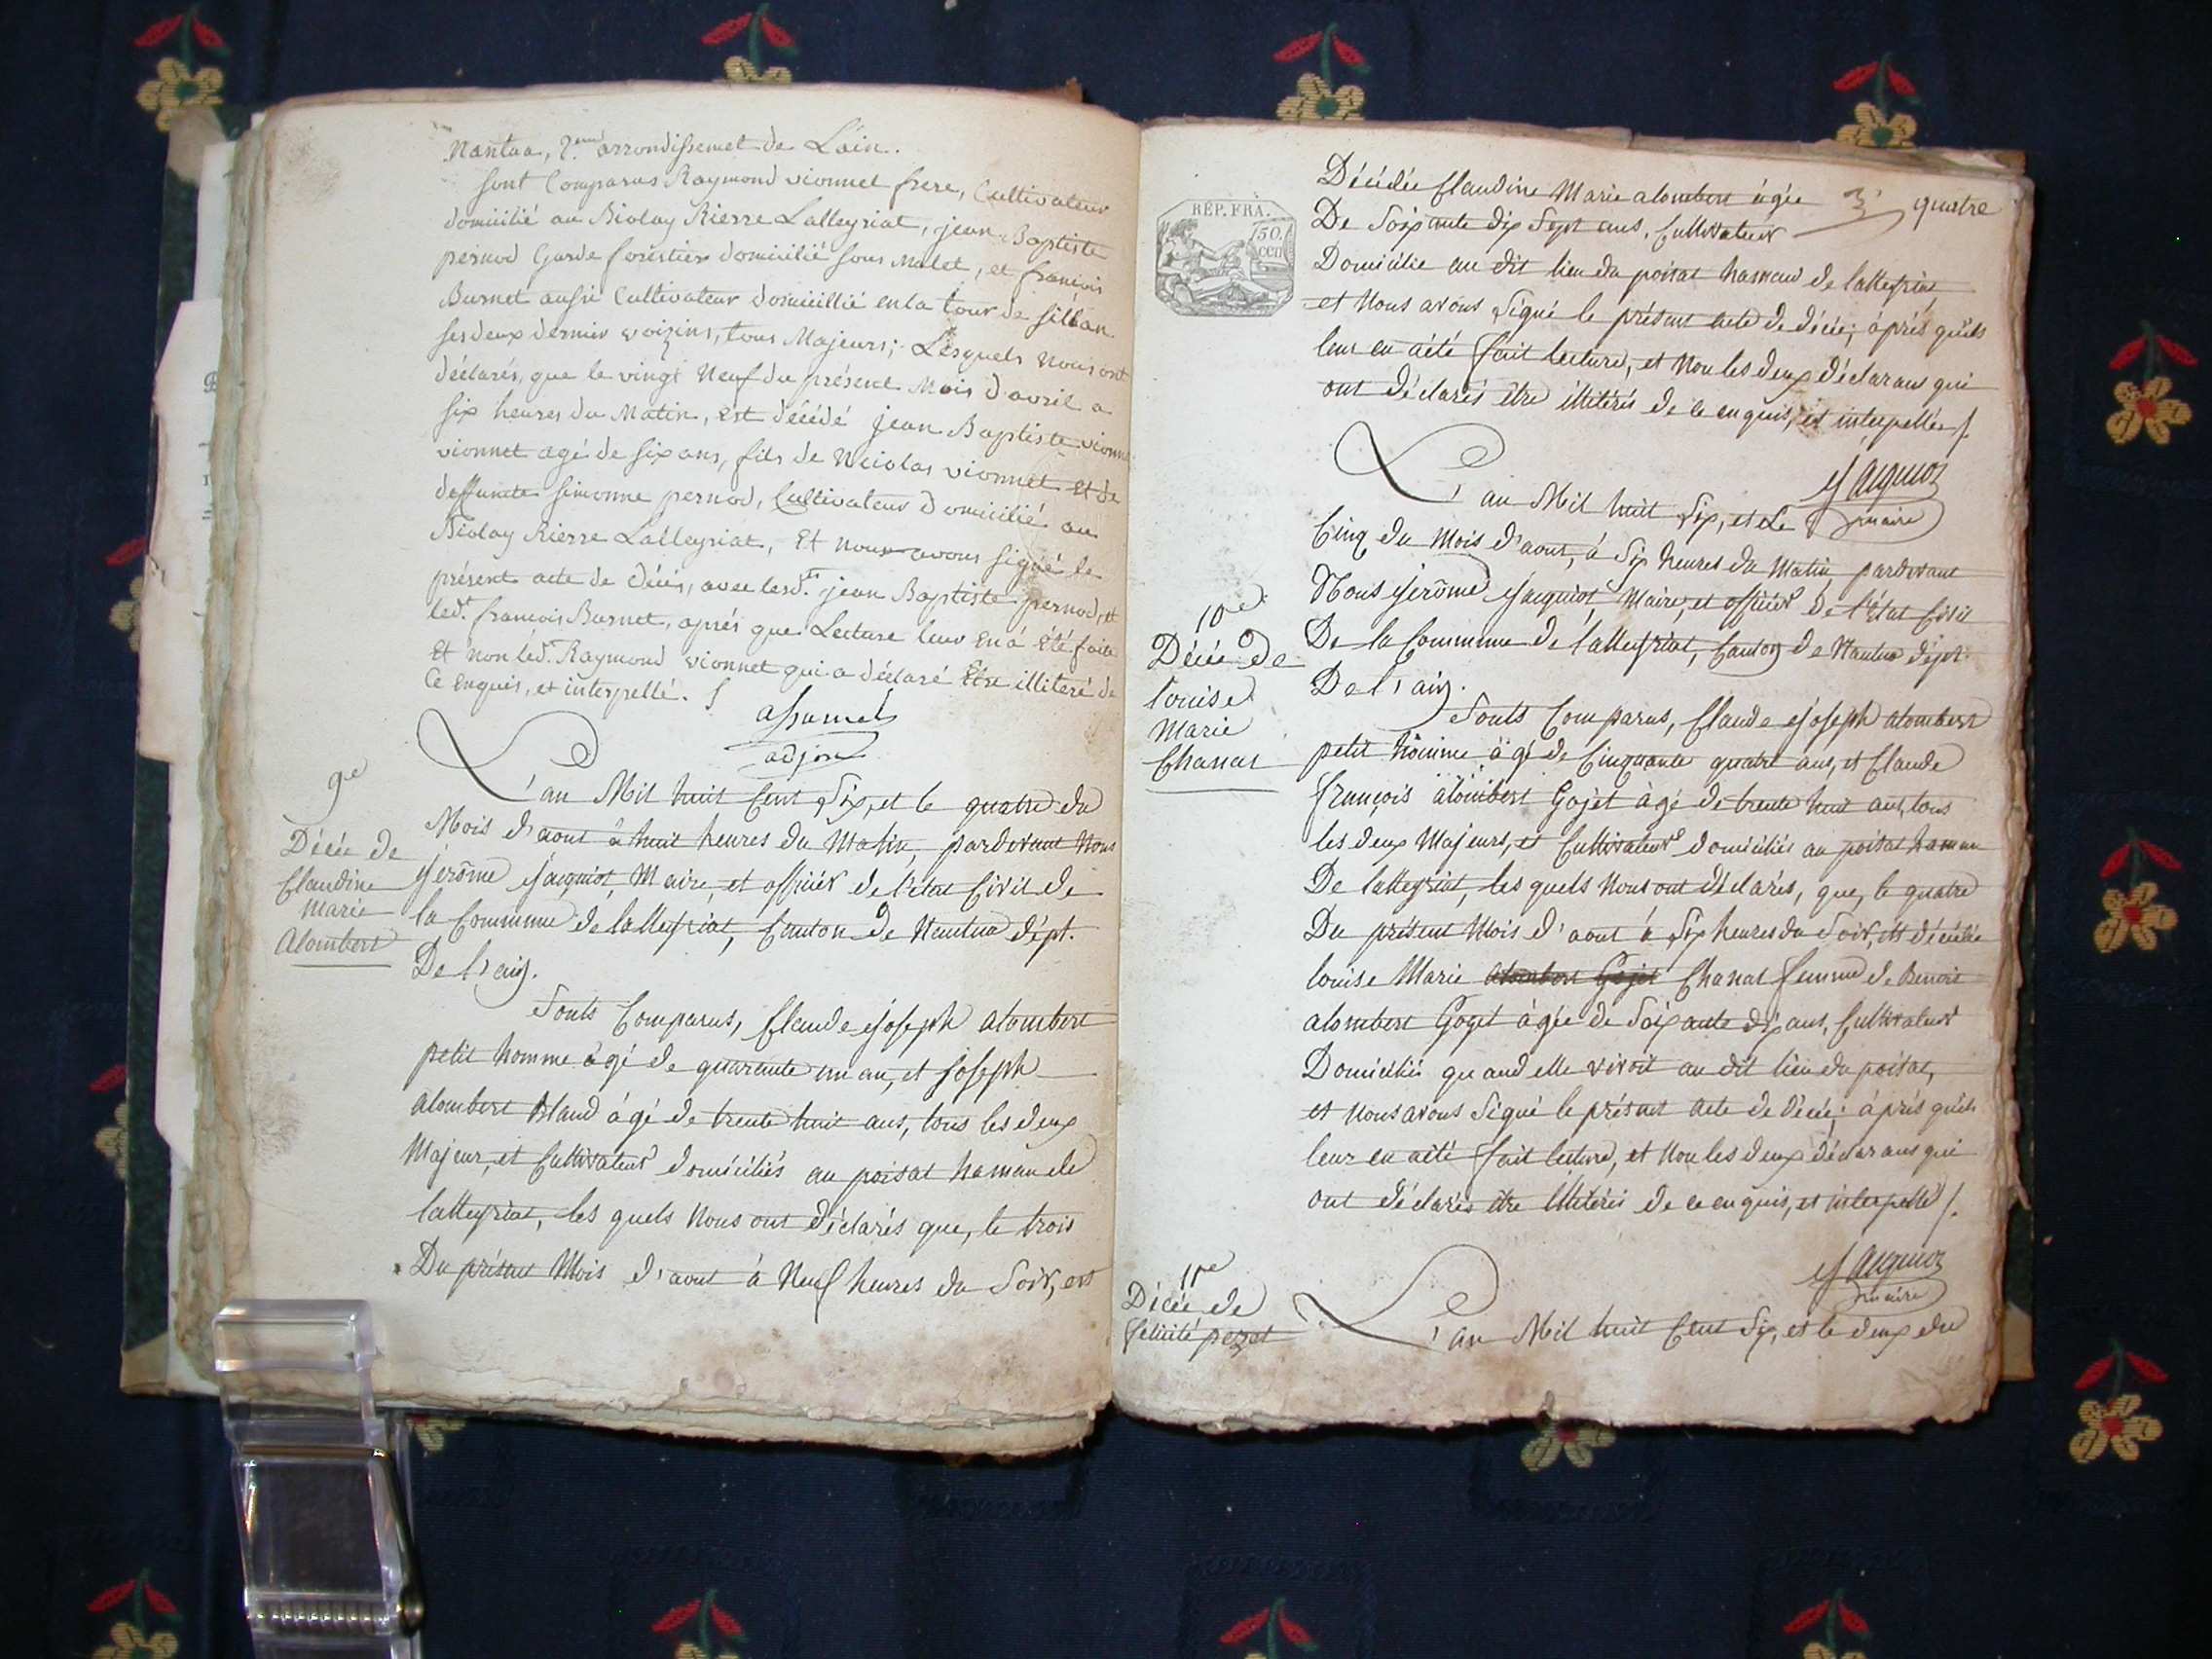 Nantua, 2.eme arrondissemet de L'ain.
sont Comparus Raymond vionnet frere, Cultivateur
domicilié au Biolay Rierre Lalleyriat, jean Baptiste
pernod Garde forestier domicilié sous Malet, et francois
Burnet aussi Cultivateur domicillié en la tour de sillan
ses deux dernier voizins, tous Majeurs; Lesquels nous ont
déclarés, que le vingt Neuf du présent Mois d'avril a
six heures du Matin, est décédé jean Baptiste vionn
vionnet agé de six ans, fils de Nicolas vionnet et de
deffuncte simonne pernod, Cultivateur domicilié au
Biolay Rierre Lalleyriat, Et nous avons signé le
présent acte de décés, avec lesd.ts jean Baptiste pernod, et
led.t francois Burnet, aprés que Lecture leur en a été faite
Et non led.t Raymond vionnet qui a déclaré Etre illiteré de
Ce enquis, et interpellé.
adjoint
9e
Décée de
Claudine
marie
Alombert
L'an Mil huit Cent Six, et le quatre du
Mois d'aout à huit heures du Matin, pardevant Nous
jerôme jacquiot, Maire, et officier de l'état Civil de
la Commune de lalleyriat, Canton de Nantua dépt.
De l'ain.
Sonts Comparus, Claude joseph alombert
petit homme àgé de quarante un an, et joseph
alombert Bland àgé de trente huit ans, tous les deux
Majeur, et Cultivateur domiciliés au poisat hamau de
lalleyriat, les quels Nous ont déclarés que, le trois
Du présent Mois d'aout à Neuf heures du Soir, est
REP. FRA.
50.
cen
3 quatre
Décédée Claudine Marie alombert àgée
De Soixante dix Sept ans, Cultivateur
Domicilie au dit lieu du poisat hamau de lalleyriat,
et Nous avons Signé le présent acte de décée; àprés qu'ils
leur en aété fait lecture, et Non les deux déclarans qui
ont déclarés être illitérés de ce enquis, et interpellés /.
jacquiot
maire
L'an Mil huit Six, et Le
Cinq du Mois d'aout, à Six heures du Matin pardevant
Nous jerôme jacquiot, Maire, et officier De l'état Civil
De la Commune de lalleyriat, Canton de Nantua dépt.
De l'ain.
10e
Décée de
louise
Marie
Chanat
Sonts Comparus, Claude joseph alombert
petit homme àgé de Cinquante quatre ans, et Claude
françois alombert Gojet àgé de trente huit ans, tous
les deux Majeurs, et Cultivateur domiciliés au poisat hamau
De lalleyriat, les quels Nous ont déclarés, que, le quatre
Du présent Mois d'aout à Six heures du Soir, est décédée
louise Marie alombert Gojet Chanat femme de Benoit
alombert Goget àgée de Soixante dix ans, Cultivateur
Domiciliée quand elle vivoit au dit lieu du poisat,
et Nous avons Signé le présent acte de décée; àprés qu'ils
leur en aété fait lecture, et Non les deux déclarans qui
ont déclarés être illitérés de ce enquis, et interpellé /.
jacquiot
maire
11e
Décée de
felicité pezat
L'an Mil huit Cent Six, et le deux du